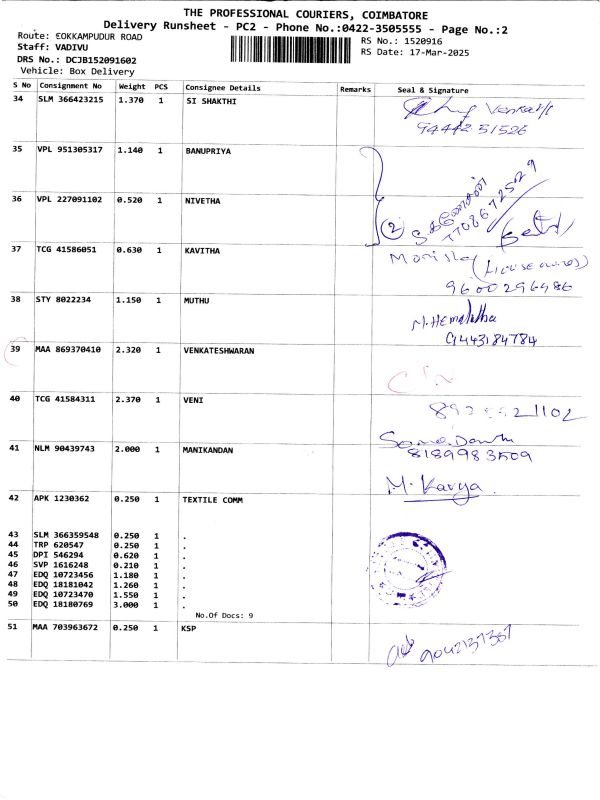 THE PROFESSIONAL COURIERS, COIMBATORE
Delivery Runsheet - PC2 - Phone No.:0422-3505555 - Page No.:2
Route: EOKKAMPUDUR ROAD
RS No.: 1520916
Staff: VADIVU
RS Date: 17-Mar-2025
DRS No.: DCJB152091602
Vehicle: Box Delivery
S No Consignment No Weight PCS Consignee Details Remarks Seal & Signature
34 SLM 366423215 1.370 1 SI SHAKTHI
94442 51526
35 VPL 951305317 1.140 1 BANUPRIYA
36 VPL 227091102 0.520 1 NIVETHA
2
7708672529
37 TCG 41586051 0.630 1 KAVITHA
(House owner)
9600296986
38 STY 8022234 1.150 1 MUTHU
M.Hemalatha
9443184784
39 MAA 869370410 2.320 1 VENKATESHWARAN
40 TCG 41584311 2.370 1 VENI
41 NLM 90439743 2.000 1 MANIKANDAN
8189983509
M. Kavya.
42 APK 1230362 0.250 1 TEXTILE COMM
43 SLM 366359548 0.250 1 .
44 TRP 620547 0.250 1 .
45 DPI 546294 0.620 1 .
46 SVP 1616248 0.210 1 .
47 EDQ 10723456 1.180 1 .
48 EDQ 18181042 1.260 1 .
49 EDQ 10723470 1.550 1 .
50 EDQ 18180769 3.000 1 .
No.Of Docs: 9
51 MAA 703963672 0.250 1 KSP
9042137367